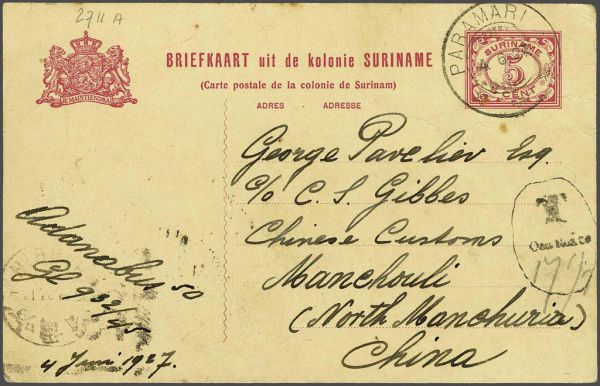 2711 A
JE MAINTIENDRAI
BRIEFKAART uit de kolonie SURINAME
(Carte postale de la colonie de Surinam)
ADRES ADRESSE
PARAMARI
SURINAME
5
CENT
George Paveliev Esq.
c/o C. S. Gibbes
Chinese Customs
Manchouli
(North Manchuria)
China
T
50
4 Juni 1927.